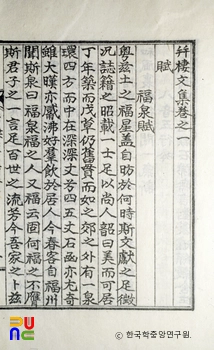 竹棲文集卷之一
賦
福泉賦
粤玆土之福星盖自昉於何時斯文獻之足徵
況誌籍之昭載一士足以尚人韶曰美而可居
丁年築而戊草仍舊貫而如之郊之外有一泉
環四方而中在深深丈若四五丈石函亦尤奇
雖大暵亦瀛沸好羣飮於居人今春客自福州
聞斯泉曰福泉福之人又福云固何福之不厚
斯君子之一言足百世之流芳今吾家之卜玆
© 한국학중앙연구원.